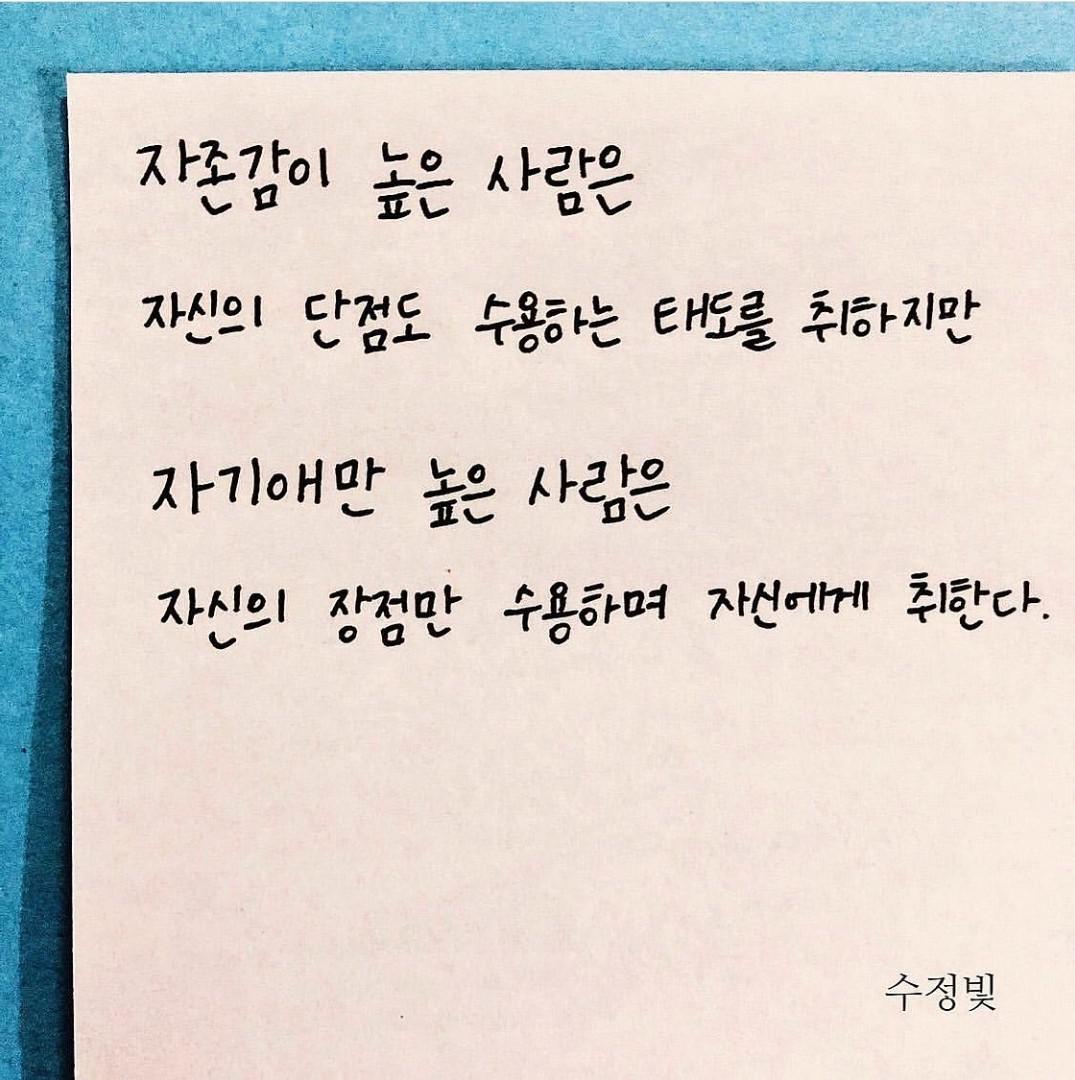 자존감이 높은 사람은
자신의 단점도 수용하는 태도를 취하지만
자기애만 높은 사람은
자신의 장점만 수용하며 자신에게 취한다.
수정빛